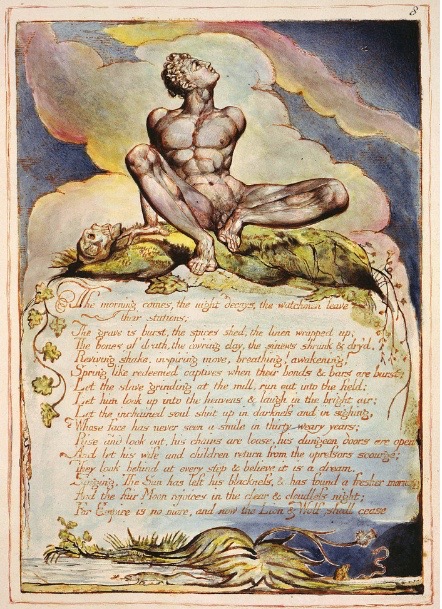 8
The morning comes, the night decays, the watchmen leave
their stations;
The grave is burst, the spices shed, the linen wrapped up;
The bones of death, the cov'ring clay, the sinews shrunk & dry'd,
Reviving shake, inspiring move, breathing! awakening!
Spring like redeemed captives when their bonds & bars are burst;
Let the slave grinding at the mill, run out into the field;
Let him look up into the heavens & laugh in the bright air;
Let the inchained soul shut up in darkness and in sighing,
Whose face has never seen a smile in thirty weary years;
Rise and look out, his chains are loose, his dungeon doors are open
And let his wife and children return from the opressors scourge;
They look behind at every step & believe it is a dream.
Singing. The Sun has left his blackness, & has found a fresher morning
And the fair Moon rejoices in the clear & cloudless night;
For Empire is no more, and now the Lion & Wolf shall cease